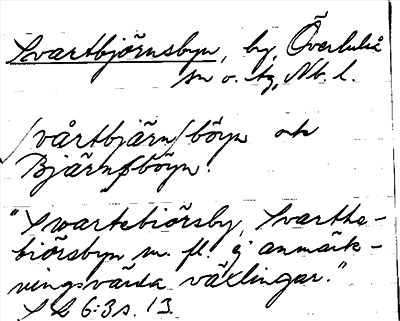 Svartbjörnsbyn, by, Överluleå
sn o. tg, Nb. l.
/svårtbjärn/böyn och
Bjärn/böyn.
"Swartebiörsby, Svarthe-
biörsbyn m. fl., ej anmärk-
ningsvärda växlingar."
SL 6:3 s. 13.